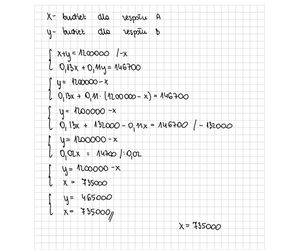 x - budżet dla zespołu A
y - budżet dla zespołu B
x+y = 1200000 /-x
0,13x + 0,11y = 146700
y = 1200000-x
0,13x + 0,11·(1200000-x) = 146700
y = 1200000-x
0,13x + 132000 - 0,11x = 146700 /-132000
y = 1200000-x
0,02x = 14700 /:0,02
y = 1200000-x
x = 735000
y = 465000
x = 735000
x = 735000